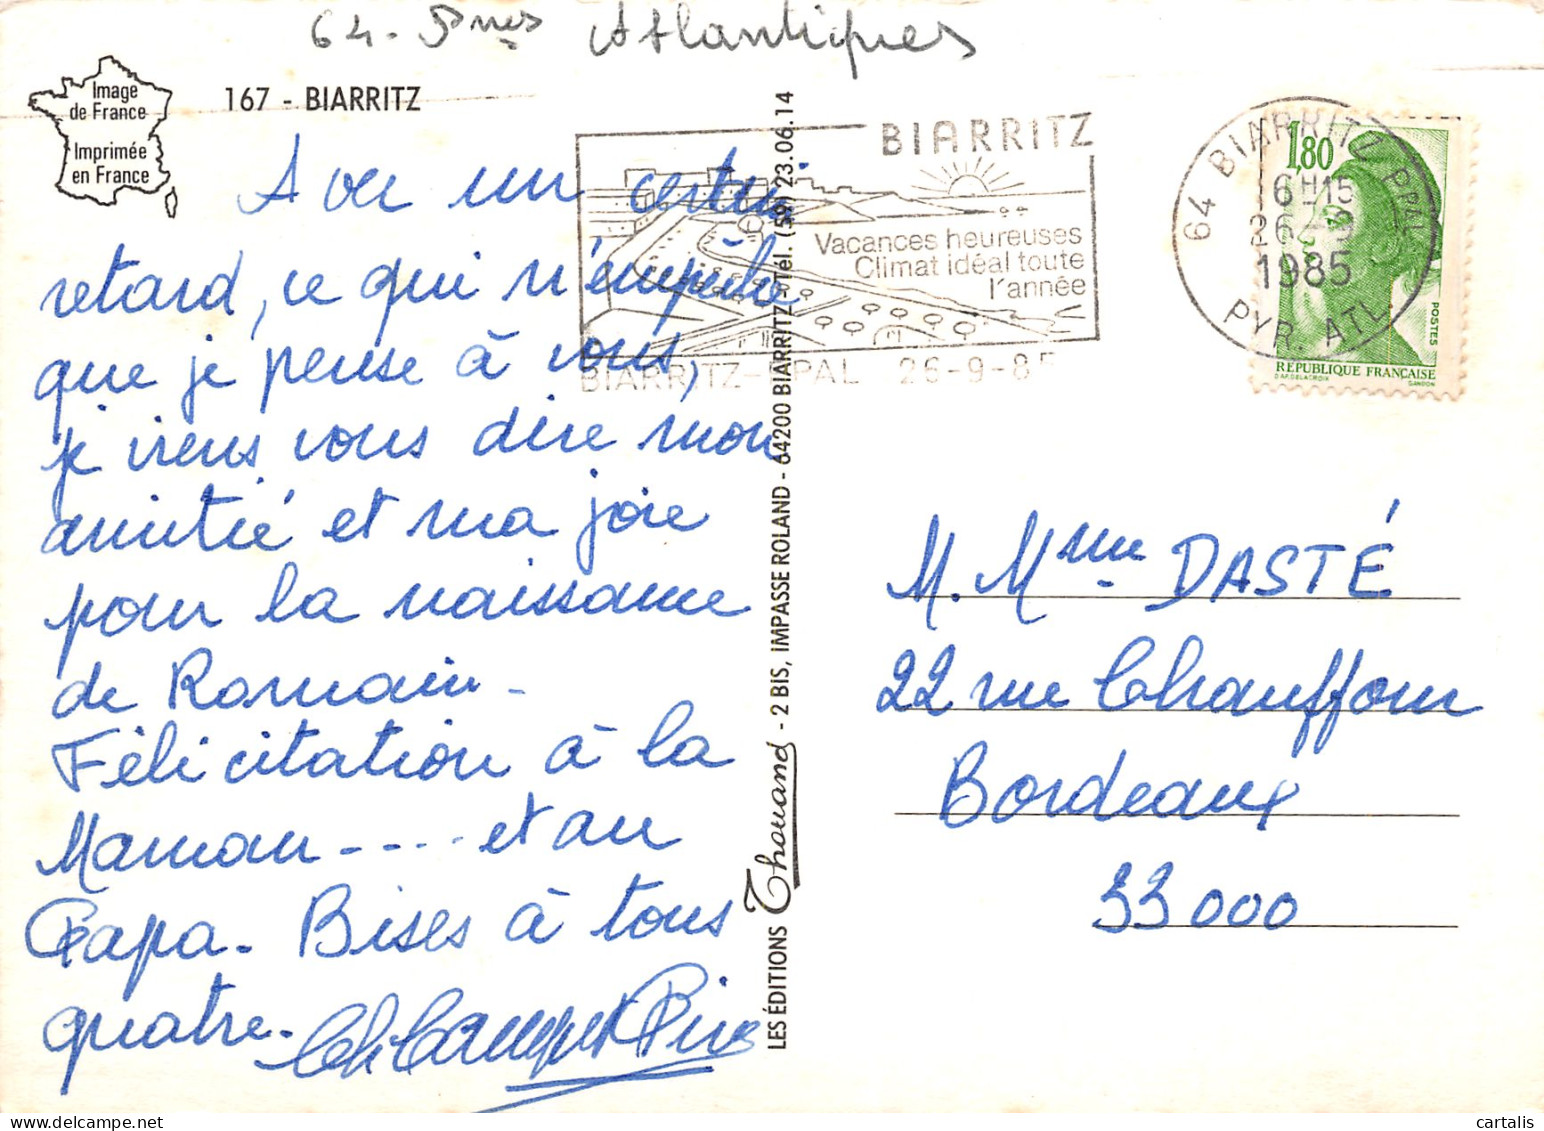 64 - Pnes Atlantiques
Image
de France
Imprimée
en France
167 - BIARRITZ
Avec un certain
retard, ce qui n'empêche
que je pense à vous,
je viens vous dire mon
amitié et ma joie
pour la naissance
de Romain -
Félicitation à la
Maman - - - - et au
Papa - Bises à tous
quatre -
LES ÉDITIONS Thouand - 2 BIS, IMPASSE ROLAND - 64200 BIARRITZ Tél. (59) 23.06.14
BIARRITZ
Vacances heureuses
Climat idéal toute
l'année
BIARRITZ-PPAL 26-9-85
64 BIARRITZ PPAL
6H15
26-9
1985
PYR. ATL
1,80
POSTES
RÉPUBLIQUE FRANÇAISE
D'AP. DELACROIX GANDON
M. Mme DASTÉ
22 rue Chauffour
Bordeaux
33000
cartalis